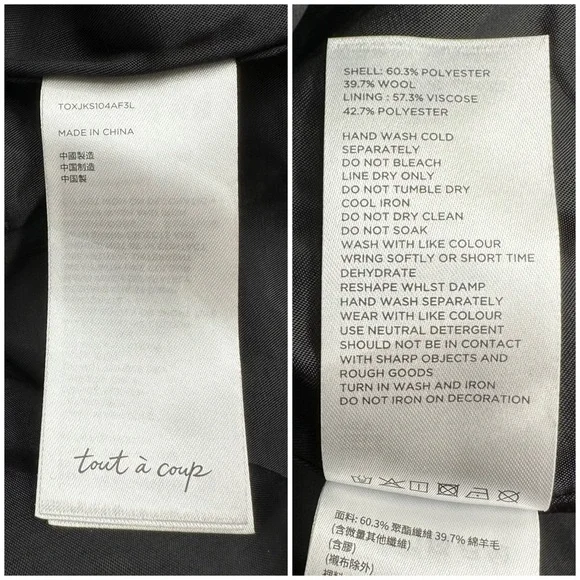 TOXJKS104AF3L
MADE IN CHINA
中國製造
中国制造
中国製
tout à coup
SHELL: 60.3% POLYESTER
39.7% WOOL
LINING : 57.3% VISCOSE
42.7% POLYESTER
HAND WASH COLD
SEPARATELY
DO NOT BLEACH
LINE DRY ONLY
DO NOT TUMBLE DRY
COOL IRON
DO NOT DRY CLEAN
DO NOT SOAK
WASH WITH LIKE COLOUR
WRING SOFTLY OR SHORT TIME
DEHYDRATE
RESHAPE WHLST DAMP
HAND WASH SEPARATELY
WEAR WITH LIKE COLOUR
USE NEUTRAL DETERGENT
SHOULD NOT BE IN CONTACT
WITH SHARP OBJECTS AND
ROUGH GOODS
TURN IN WASH AND IRON
DO NOT IRON ON DECORATION
面料: 60.3% 聚酯纖維 39.7% 綿羊毛
(含微量其他纖維)
(含膠)
(襯布除外)